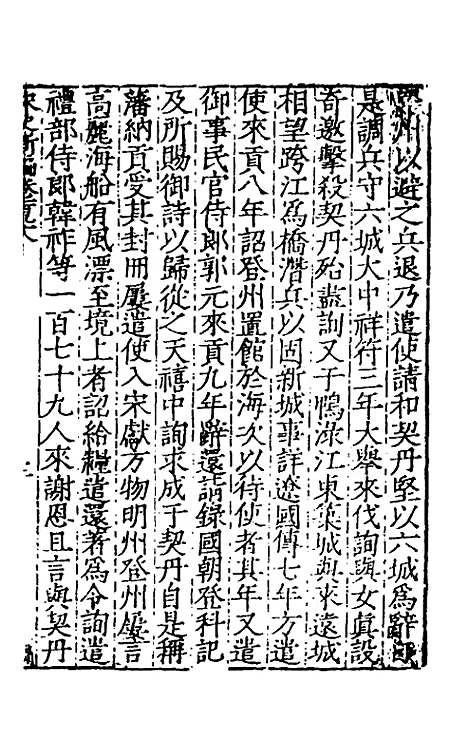 州以避之兵退乃遣使請和契丹堅以六城爲辭自
是調兵守六城大中祥符三年大舉來伐詢與女真設
奇邀擊殺契丹殆盡詢又于鴨淥江東築城與來遠城
相望跨江爲橋潛兵以固新城事詳遼國傳七年方遣
使來貢八年詔登州置館於海次以待使者其年又遣
御事民官侍郎郭元來貢九年辭還請錄國朝登科記
及所賜御詩以歸從之天禧中詢求成于契丹自是稱
藩納貢受其封冊屢遣使入宋獻方物明州登州屢言
高麗海船有風漂至境上者詔給糧遣還著爲令詢遣
禮部侍郎韓祚等一百七十九人來謝恩且言與契丹